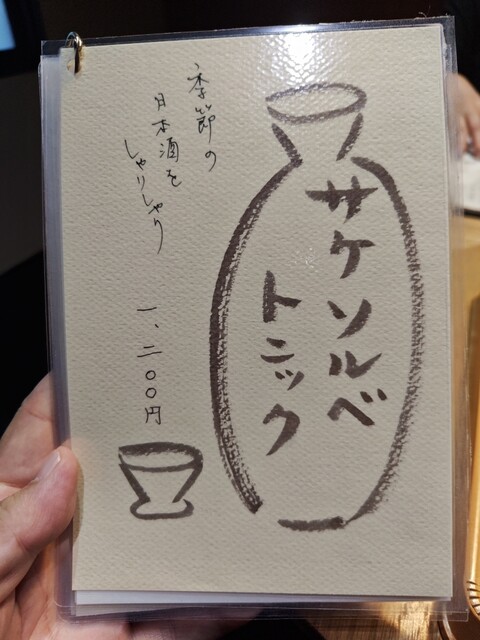 サケソルベ
トニック
季節の
日本酒を
しゃりしゃり
一、二〇〇円